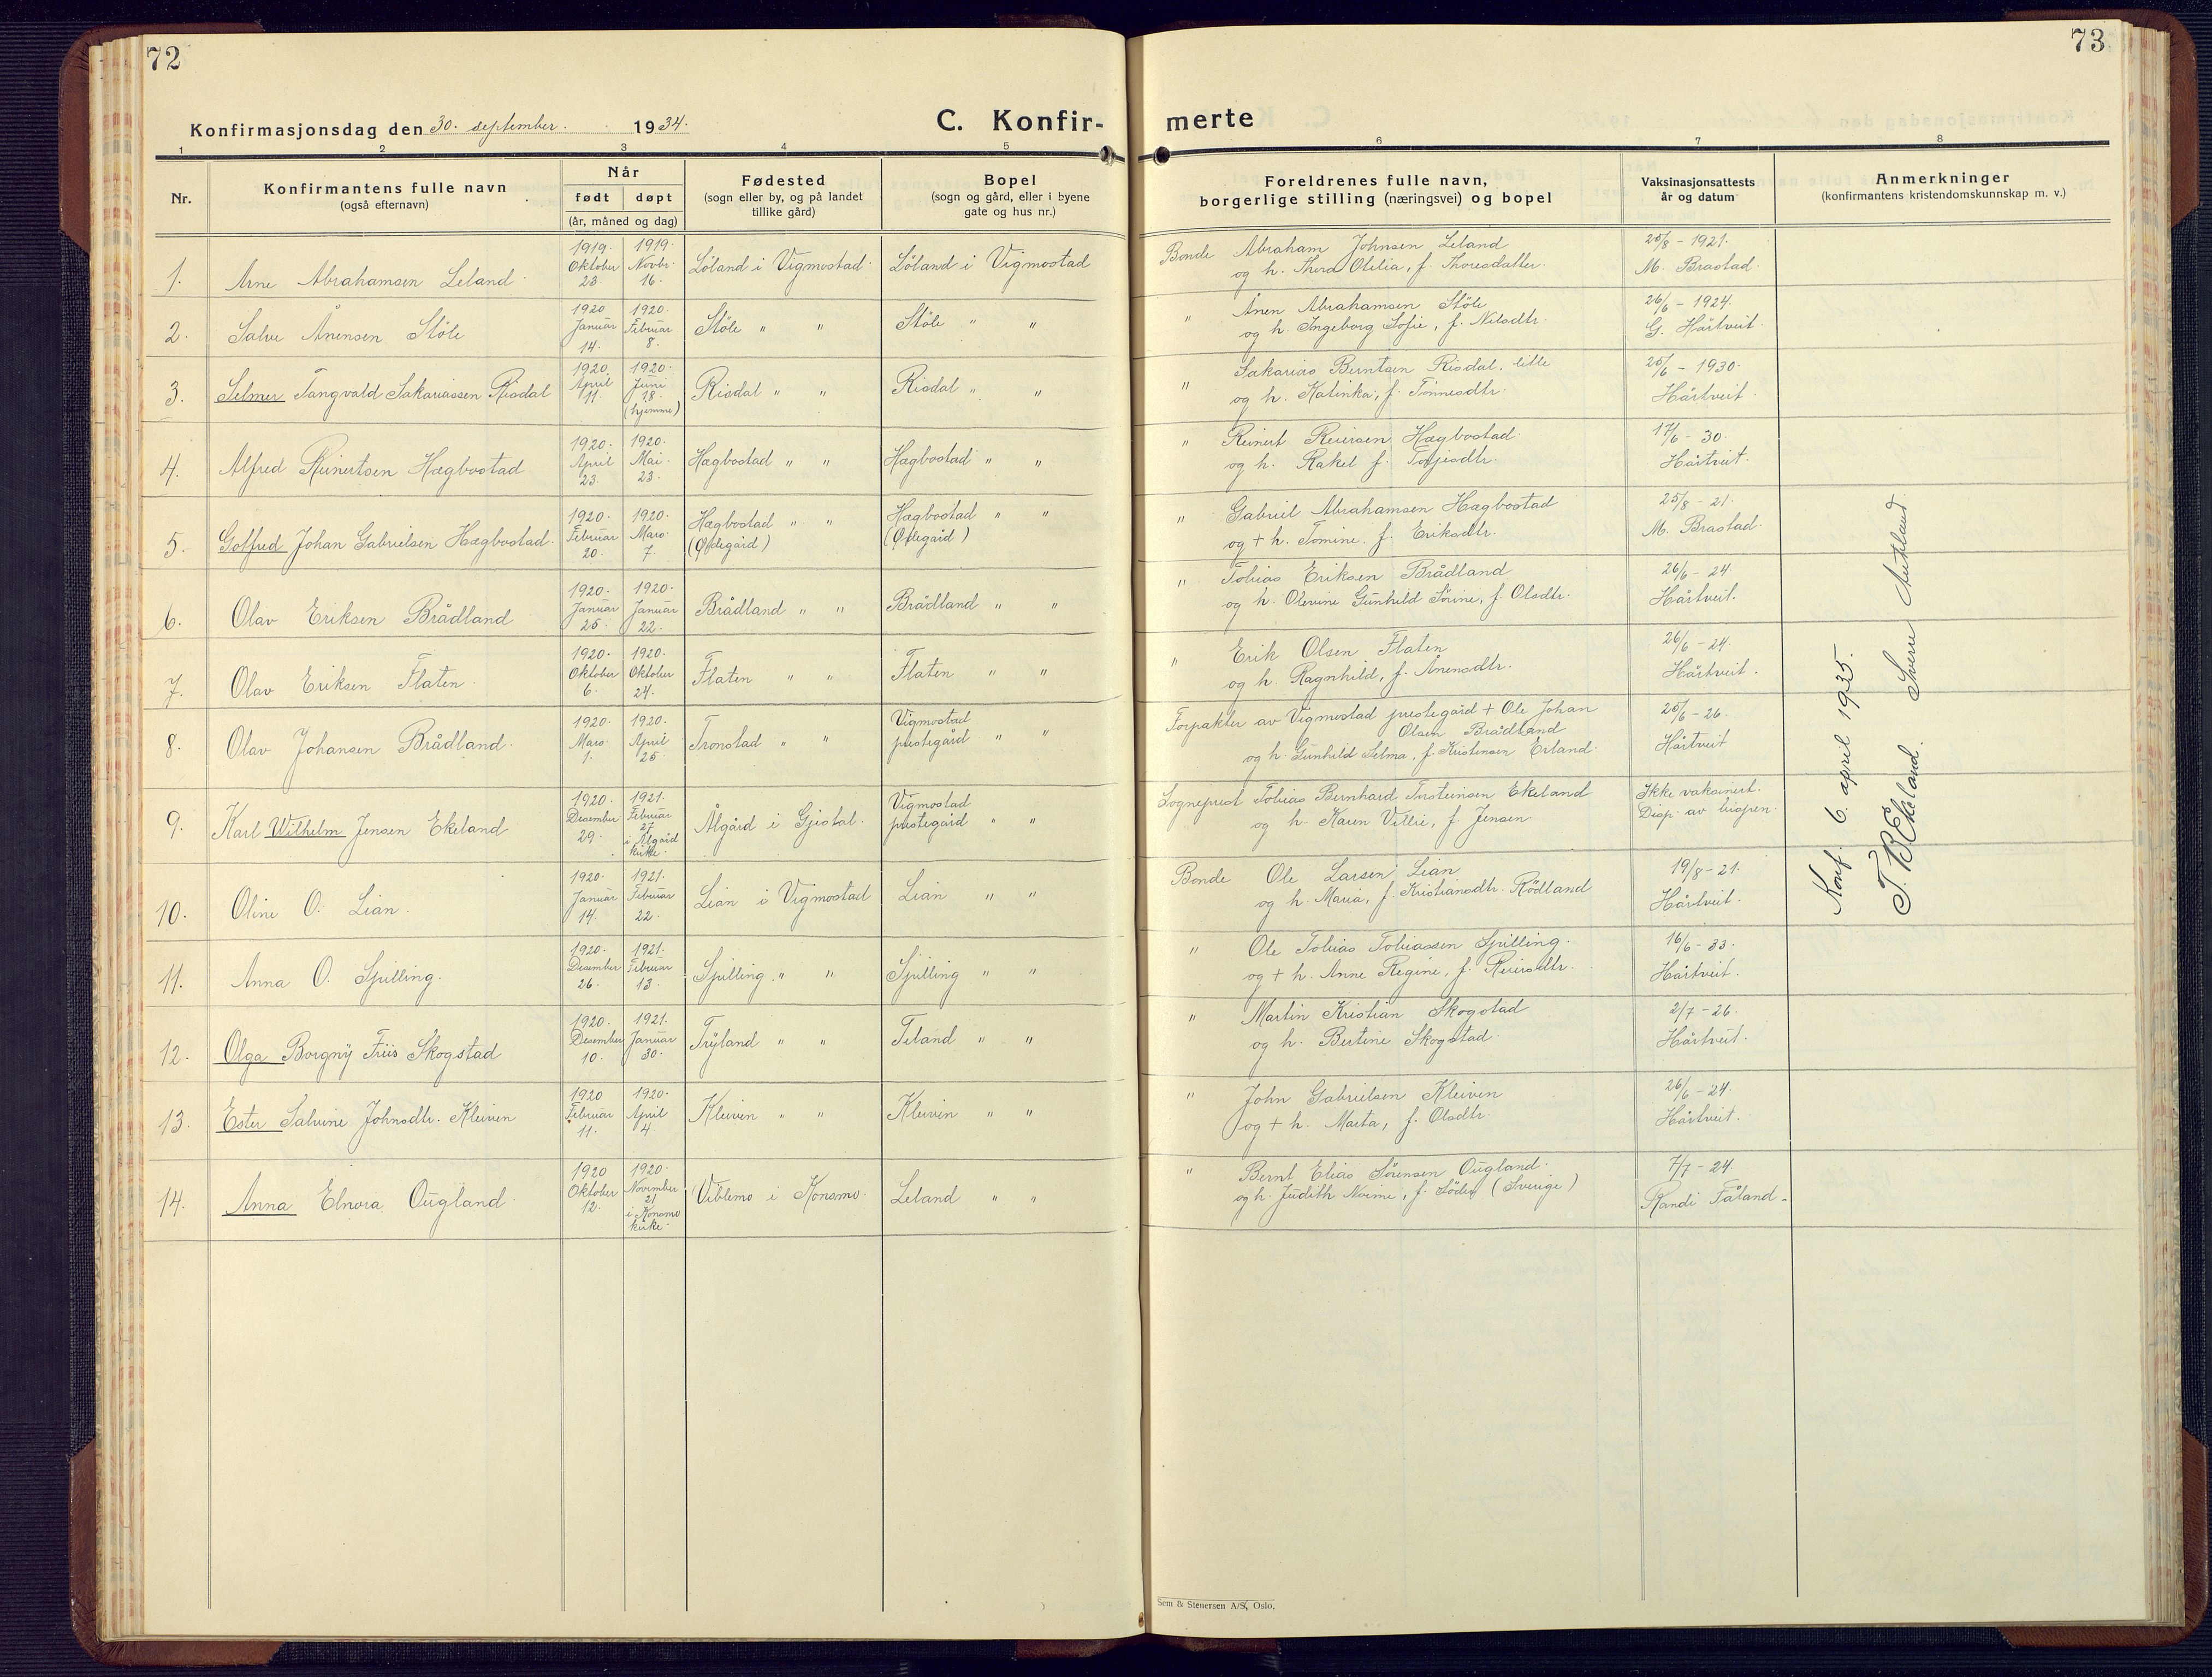 72
73
Konfirmasjonsdag den 30. september. 1934.
C. Konfir-
merte
1 2 3 4 5
6 7 8
Nr.
Konfirmantens fulle navn
(også efternavn)
Når
født døpt
(år, måned og dag)
Fødested
(sogn eller by, og på landet
tillike gård)
Bopel
(sogn og gård, eller i byene
gate og hus nr.)
Foreldrenes fulle navn,
borgerlige stilling (næringsvei) og bopel
Vaksinasjonsattests
år og datum
Anmerkninger
(konfirmantens kristendomskunnskap m. v.)
1. Arne Abrahamsen Leland
1919. Oktober 23.
1919. Novbr. 16.
Löland i Vigmostad.
Löland i Vigmostad
Bonde Abraham Johnsen Leland
og h. Thora Otilia, f. Thoresdatter.
25/8 - 1921.
M. Brastad.
2. Salve Ånensen Støle
1920 Januar 14.
1920. Februar 8.
Støle " "
Støle " "
" Ånen Abrahamsen Støle
og h. Ingeborg Sofie, f. Nilsdtr.
26/6 - 1924.
G. Hårtveit.
3. Selmer Tangvald Sakariassen Risdal
1920. April 11.
1920. Juni 13. (hjemme)
Risdal " "
Risdal " "
" Sakarias Berntsen Risdal, litle
og h. Katinka, f. Tønnesdtr.
25/6 - 1930.
Hårtveit.
4. Alfred Reinertsen Hægbostad
1920. April 23.
1920. Mai 23.
Hægbostad " "
Hægbostad " "
" Reinert Reiersen Hægbostad.
og h. Rakel f. Terjesdtr.
17/6 - 30.
Hårtveit.
5. Golfred Johan Gabrielsen Hægbostad.
1920. Februar 20.
1920. Mars 7.
Hægbostad " "
(Ødegård)
Hægbostad " "
(Ødegård)
" Gabriel Abrahamsen Hægbostad
og + h. Tomine. f. Eriksdtr.
25/8 - 21.
M. Brastad.
6. Olav Eriksen Brådland
1920. Januar 25.
1920. Januar 22.
Brådland " "
Brådland " "
" Tobias Eriksen Brådland
og h. Olevine Gunhild Sørine, f. Olsdtr.
26/6 - 24.
Hårtveit.
7. Olav Eriksen Flaten.
1920. Oktober 6.
1920. Oktober 24.
Flaten " "
Flaten " "
" Erik Olsen Flaten
og h. Ragnhild, f. Ånensdtr.
26/6 - 24.
Hårtveit.
8. Olav Johansen Brådland.
1920. Mars 1.
1920. April 25.
Tronstad " "
Vigmostad
prestegård " "
Forpakter av Vigmostad prestegård + Ole Johan
Olsen Brådland
og h. Gunhild Selma, f. Kristensen Erland.
25/6 - 26.
Hårtveit
9. Karl Wilhelm Jensen Ekeland
1920. Desember 29.
1921. Februar 27 i Ålgård kirke.
Ålgård i Gjestal.
Vigmostad
prestegård " "
Sogneprest Tobias Bernhard Torsteinsen Ekeland
og h. Karen Villie, f. Jensen
Ikke vaksinert.
Disp. av bispen.
10. Oline O. Lian.
1920. Januar 14.
1921. Februar 22.
Lian i Vigmostad
Lian " "
Bonde Ole Larsen Lian
og h. Maria, f. Kristiansdtr. Rödland
19/8 - 21.
Hårtveit.
11. Anna O. Spilling.
1920. Desember 26.
1921. Februar 13.
Spilling " "
Spilling " "
" Ole Tobias Tobiassen Spilling.
og + h. Anne Regine, f. Reiersdtr.
16/6 - 33.
Hårtveit.
12. Olga Borgny Friis Skogstad
1920. Desember 10.
1921. Januar 30.
Tryland " "
Teland " "
" Martin Kristian Skogstad
og h. Bertine Skogstad.
2/7 - 26.
Hårtveit.
13. Ester Salvine Johnsdtr. Kleiven
1920 Februar 11.
1920. April 4.
Kleiven " "
Kleiven " "
" John Gabrielsen Kleiven
og + h. Marta, f. Olsdtr.
26/6 - 24.
Hårtveit.
14. Anna Elnora Ougland
1920 Oktober 12.
1920. November 21 i Konsmo kirke.
Viblemo i Konsmo.
Leland " "
" Bernt Elias Sörensen Ougland.
og h. Judith Noime, f. Söder (Sverige)
7/7 - 24.
Randi Fåland.
Konf. 6. april 1935.
T. B. Ekeland. Sverre
Sem & Stenersen A/S, Oslo.